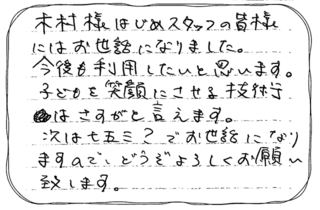 木村様はじめスタッフの皆様
にはお世話になりました。
今後も利用したいと思います。
子どもを笑顔にさせる技術
はさすがと言えます。
次は七五三?でお世話になり
ますので、どうぞよろしくお願い
致します。